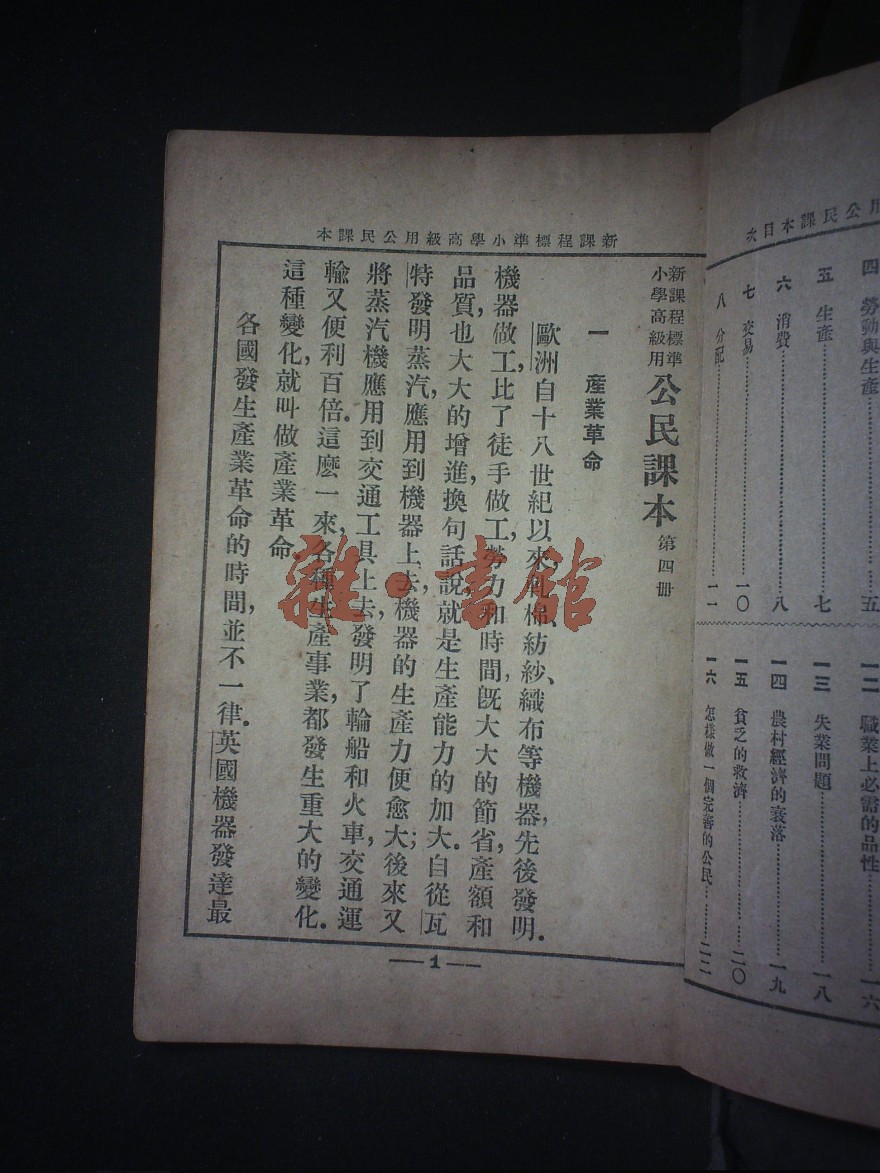 用公民課本目次
四 勞動與生產……五
五 生產……七
六 消費……八
七 交易……一〇
八 分配……一一
一二 職業上必需的品性……一六
一三 失業問題……一八
一四 農村經濟的衰落……一九
一五 貧乏的救濟……二〇
一六 怎樣做一個完善的公民……二二
新課程標準小學高級用公民課本
新課程標準
小學高級用
公民課本 第四冊
一 產業革命
歐洲自十八世紀以來,軋棉、紡紗、織布等機器,先後發明.
機器做工,比了徒手做工,勞力和時間,旣大大的節省,產額和
品質,也大大的增進,換句話說,就是生產能力的加大.自從瓦
特發明蒸汽,應用到機器上去,機器的生產力便愈大;後來又
將蒸汽機應用到交通工具上去,發明了輪船和火車,交通運
輸又便利百倍.這麼一來,各種生產事業,都發生重大的變化.
這種變化,就叫做產業革命.
各國發生產業革命的時間,並不一律.英國機器發達最
—1—
雜·書館